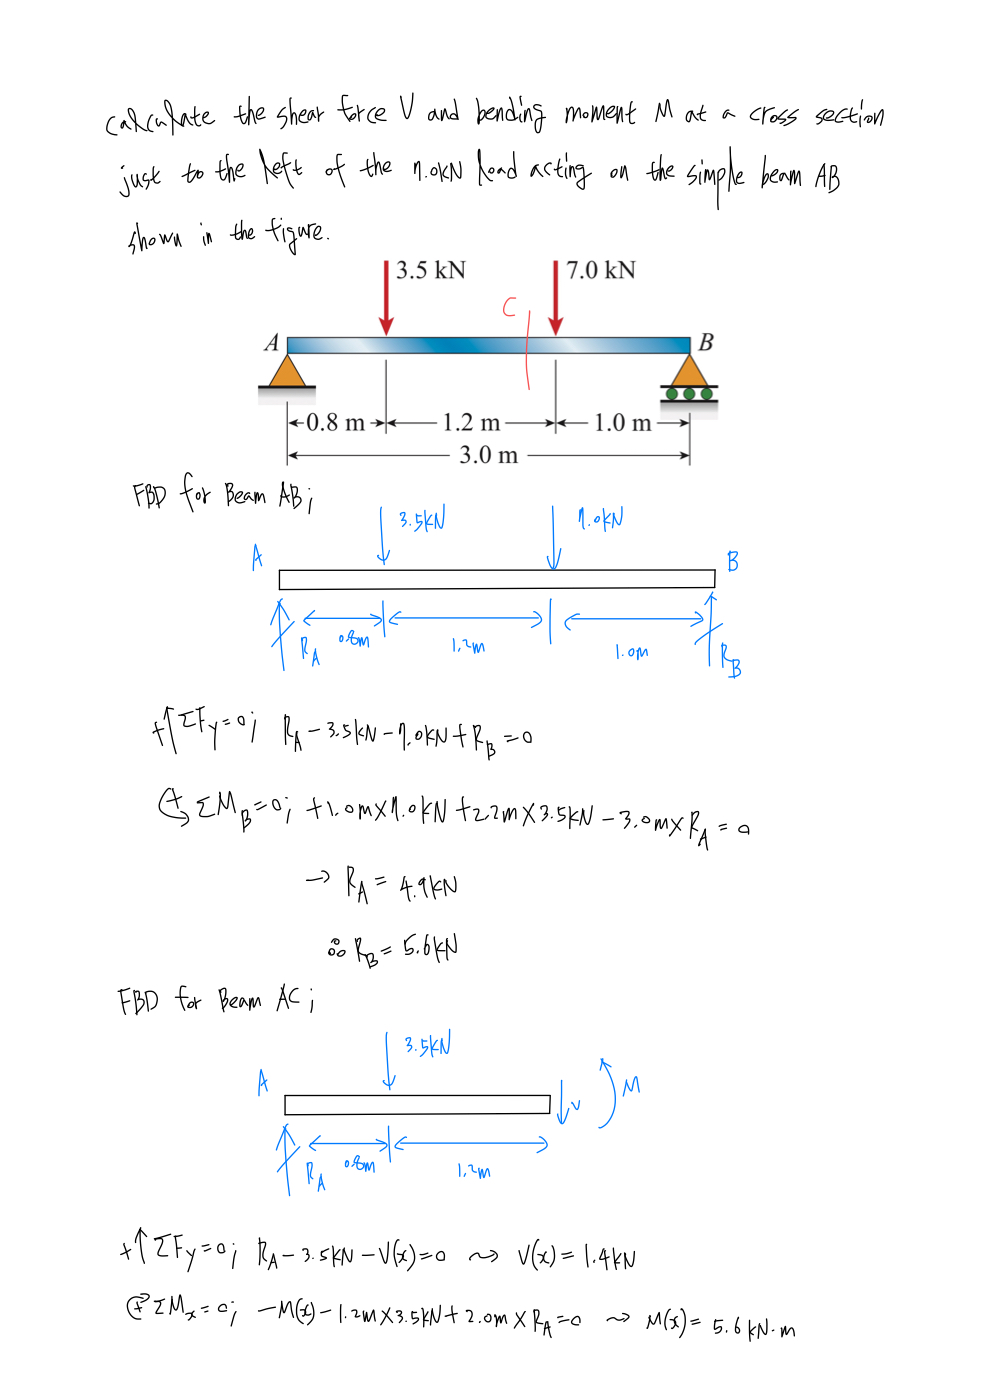 calculate the shear force V and bending moment M at a cross section
just to the left of the 7.0kN load acting on the simple beam AB
shown in the figure.
3.5 kN 7.0 kN
C
A B
0.8 m 1.2 m 1.0 m
3.0 m
FBD for Beam AB;
3.5kN 7.0kN
A B
R_A 0.8m 1.2m 1.0m R_B
+↑ΣF_y=0; R_A-3.5kN-7.0kN+R_B=0
↺+ ΣM_B=0; +1.0m×7.0kN+2.2m×3.5kN-3.0m×R_A=0
→ R_A=4.9kN
∴ R_B=5.6kN
FBD for Beam AC;
3.5kN
A V M
R_A 0.8m 1.2m
+↑ΣF_y=0; R_A-3.5kN-V(x)=0 ⤳ V(x)=1.4kN
↻+ ΣM_x=0; -M(x)-1.2m×3.5kN+2.0m×R_A=0 ⤳ M(x)=5.6kN·m